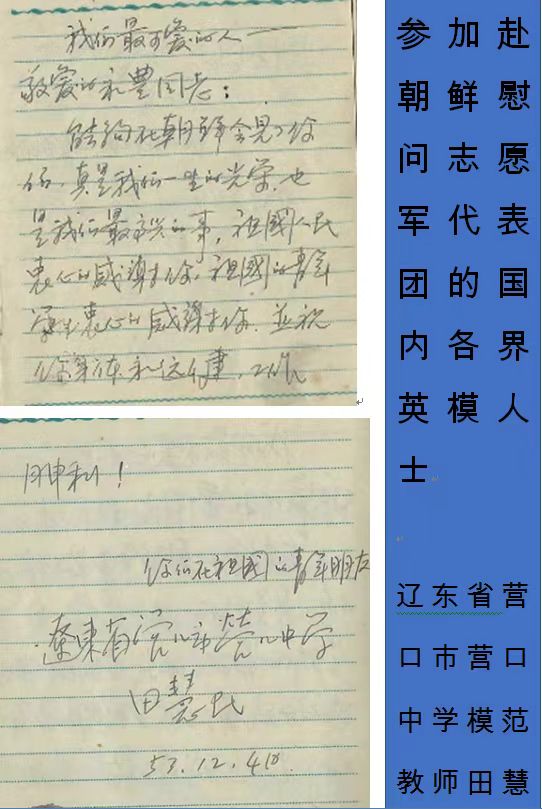 我们最可爱的人——
敬爱的礼豊同志：
能夠在朝鮮会見了你
们，真是我们一生的光荣，也
是我们最高兴的事，祖國人民
衷心的感謝你，祖國的青年
学生衷心的感謝你，並祝
你身体永远健，工作
利！
你们在祖國的青年朋友
遼東省营口市营口中学
田慧民
53.12.4日
参加赴
朝鲜慰
问志愿
军代表
团的国
内各界
英模人
士
辽东省营
口市营口
中学模范
教师田慧